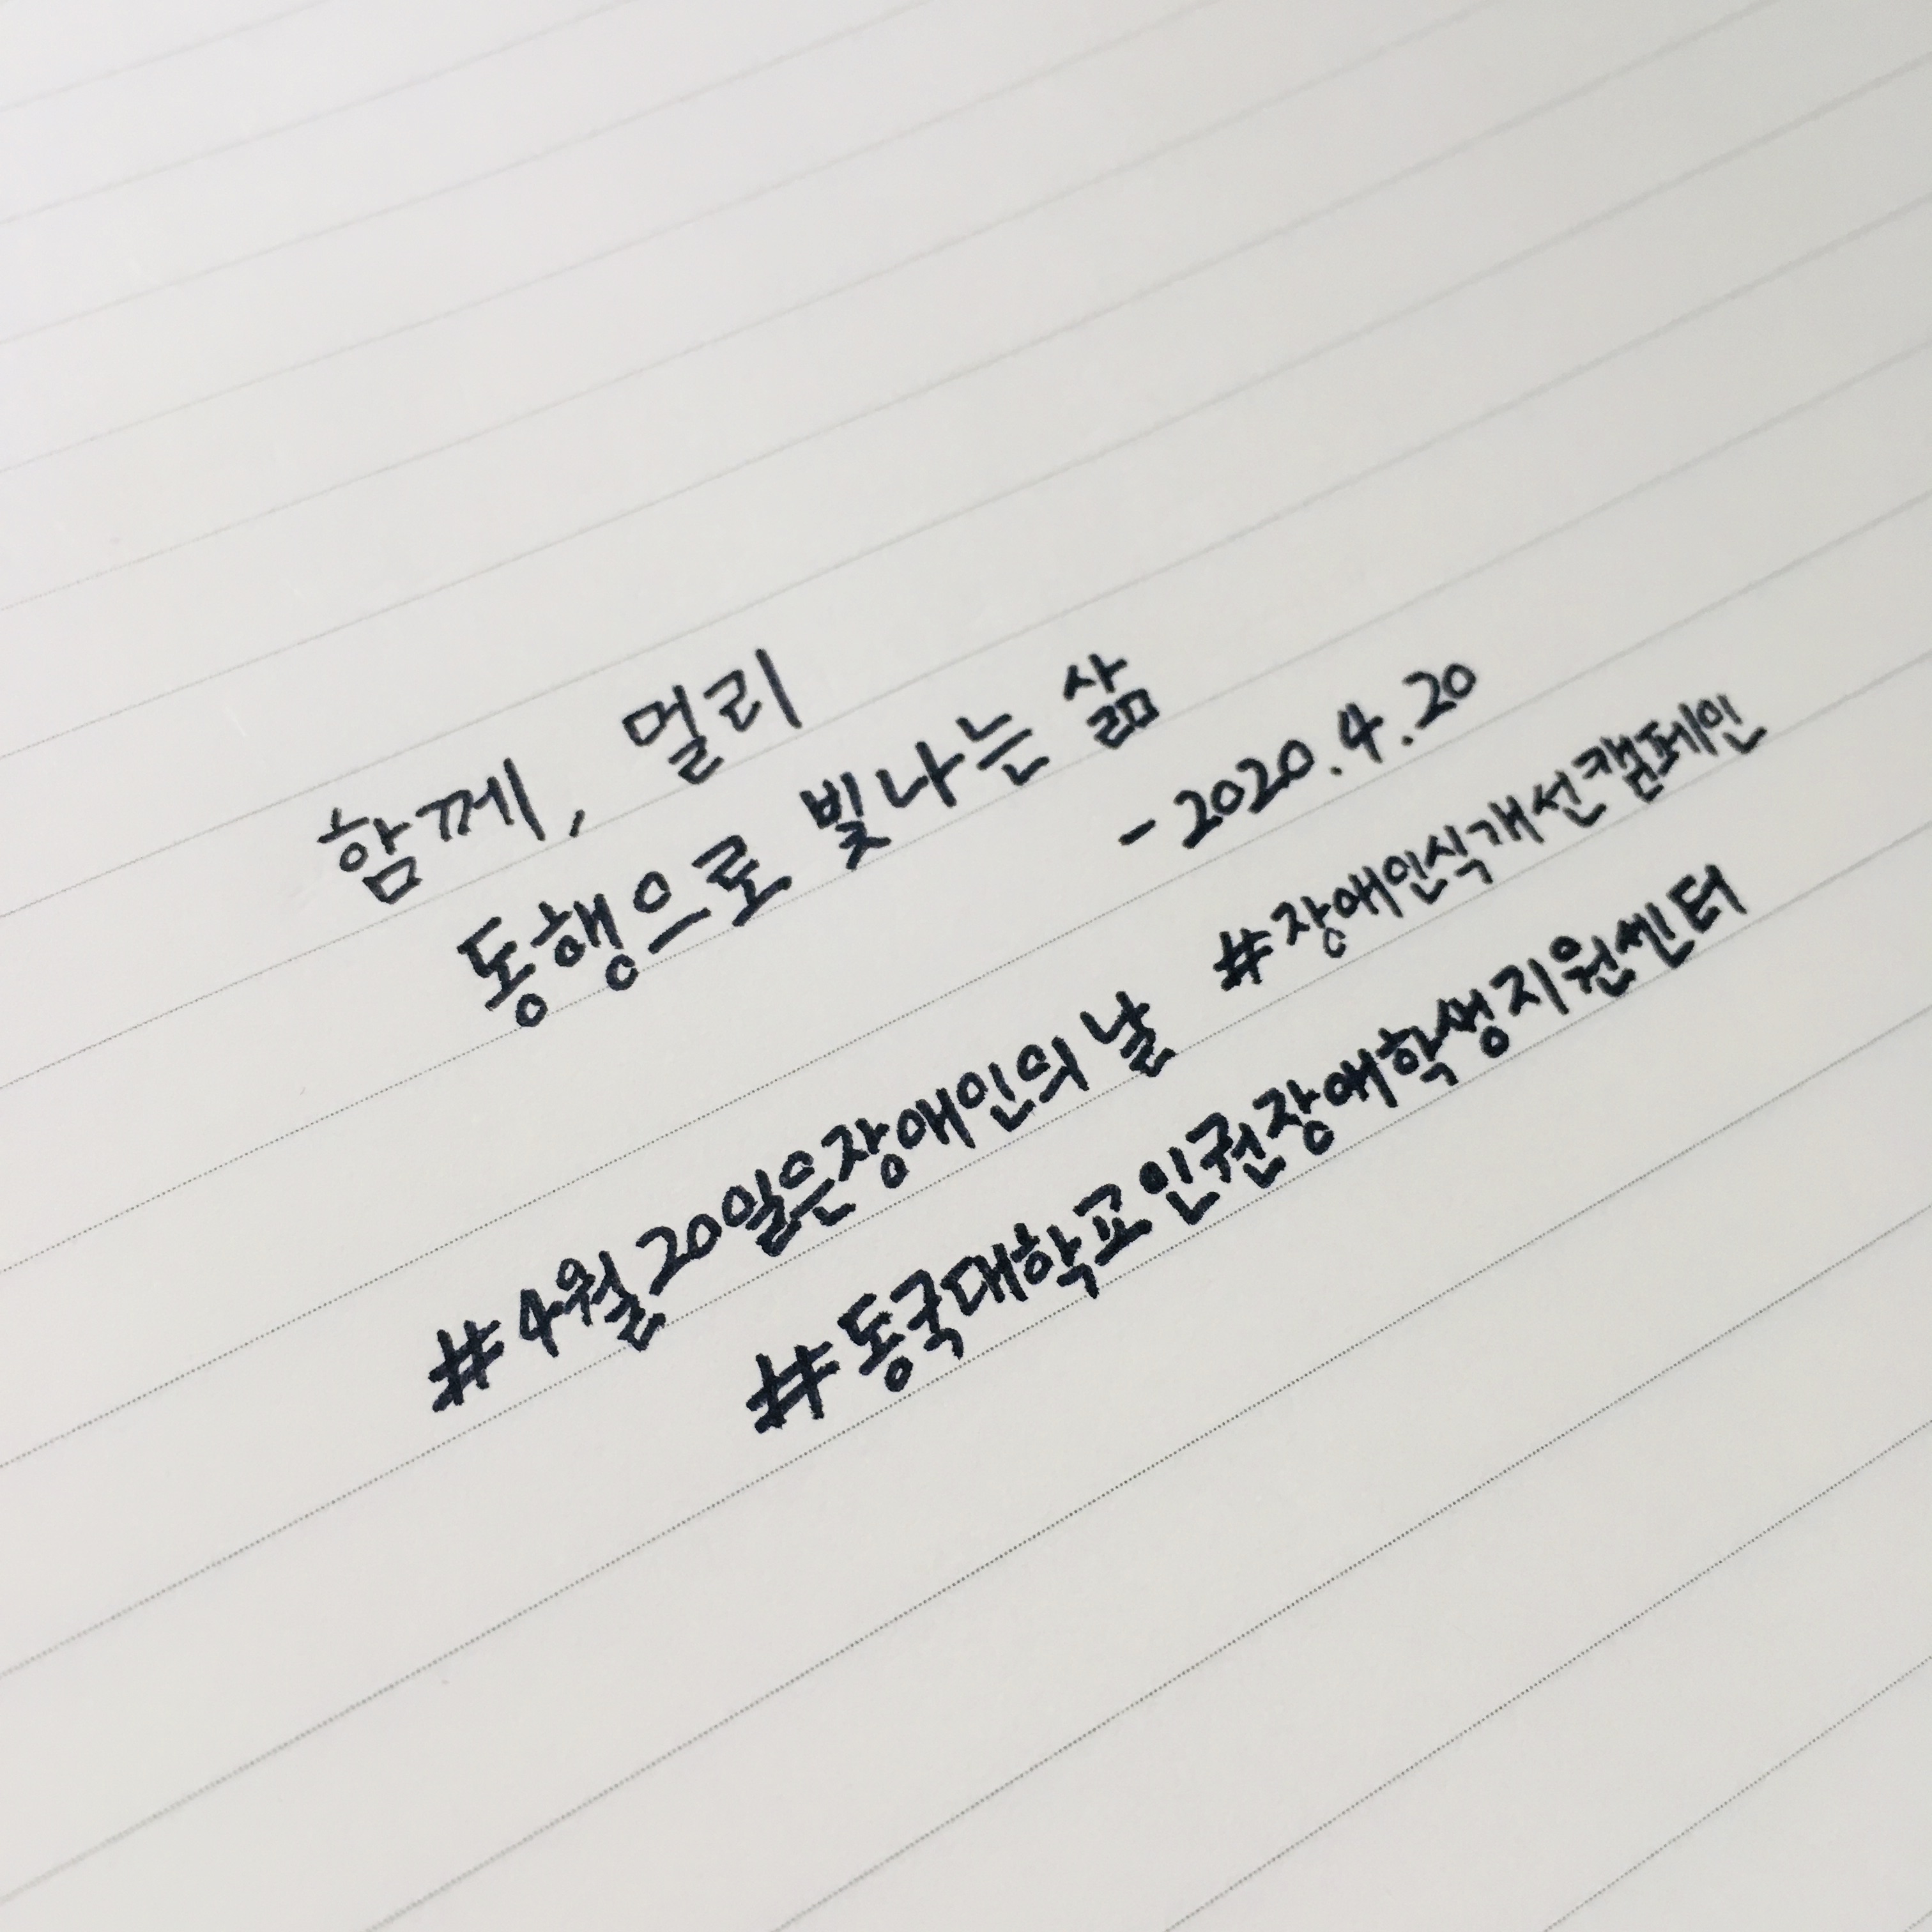 함께, 멀리
동행으로 빛나는 삶
- 2020.4.20
#4월20일은장애인의날 #장애인식개선캠페인
#동국대학교인권장애학생지원센터